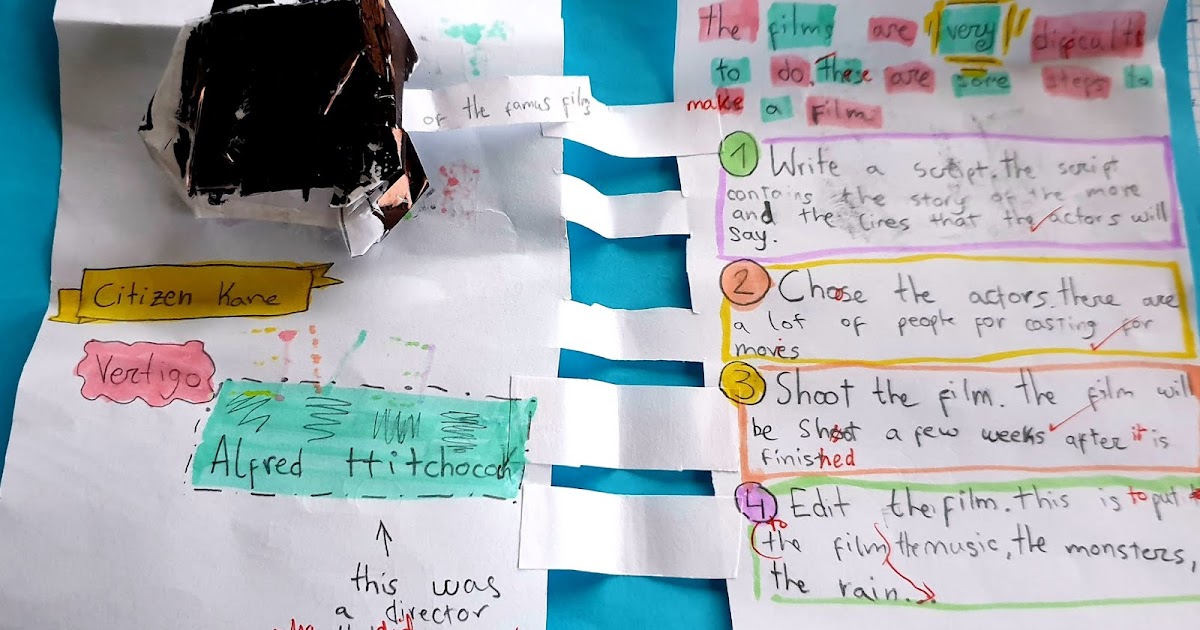 of the famus film
Citizen Kane
Vertigo
Alfred Hitchocock
this was
a director
the films are very difficult
to do, These are some steps to
make a film
1 Write a script. the script
contains the story of the more
and the lires that the actors will
say.
2 Chose the actors. there are
a lot of people for casting for
movies
3 Shoot the film. the film will
be shoot a few weeks after it is
finished
4 Edit the film. this is to put
to
(the film) the music, the monsters,
the rain.